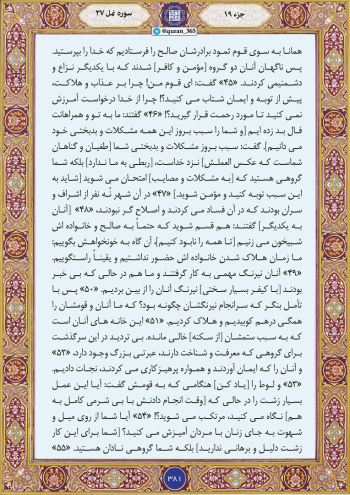 جزء ۱۹
@quran_365
سوره نمل ۲۷
همانا به سوی قوم ثمود برادرشان صالح را فرستادیم که خدا را بپرستید.
پس ناگهان آنان دو گروه [مؤمن و کافر] شدند که با یکدیگر نزاع و
دشمنی کردند. «۴۵» گفت: ای قوم من! چرا بر عذاب و هلاکت،
پیش از توبه و ایمان شتاب می کنید؟! چرا از خدا درخواست آمرزش
نمی کنید تا مورد رحمت قرار گیرید؟! «۴۶» گفتند: ما به تو و همراهانت
فال بد زده ایم [و شما را سبب بروز این همه مشکلات و بدبختی خود
می دانیم]. گفت: سبب بروز مشکلات و بدبختی شما [طغیان و گناهان
شماست که عکس العملش] نزد خداست، [ربطی به ما ندارد] بلکه شما
گروهی هستید که [به مشکلات و مصایب] امتحان می شوید [شاید به
این سبب توبه کنید و مؤمن شوید.] «۴۷» در آن شهر نُه نفر از اشراف و
سران بودند که در آن فساد می کردند و اصلاح گر نبودند. «۴۸» [آنان
به یکدیگر] گفتند: هم قسم شوید که حتماً به صالح و خانواده اش
شبیخون می زنیم [تا همه را نابود کنیم]، آن گاه به خونخواهش بگوییم:
ما زمان هلاک شدن خانواده اش حضور نداشتیم و یقیناً راستگوییم.
«۴۹» آنان نیرنگ مهمی به کار گرفتند و ما هم در حالی که بی خبر
بودند [با کیفر بسیار سختی] نیرنگ آنان را از بین بردیم. «۵۰» پس با
تأمل بنگر که سرانجام نیرنگشان چگونه بود؟ که ما آنان و قومشان را
همگی درهم کوبیدیم و هلاک کردیم. «۵۱» این خانه های آنان است
که به سبب ستمشان [از سکنه] خالی مانده. بی تردید در این سرگذشت
برای گروهی که معرفت و شناخت دارند، عبرتی بزرگ وجود دارد، «۵۲»
و آنان را که ایمان آوردند و همواره پرهیزکاری می کردند، نجات دادیم.
«۵۳» و لوط را [یاد کن] هنگامی که به قومش گفت: آیا این عمل
بسیار زشت را در حالی که [وقت انجام دادنش با بی شرمی کامل به
هم] نگاه می کنید، مرتکب می شوید؟! «۵۴» آیا شما از روی میل و
شهوت به جای زنان با مردان آمیزش می کنید؟ [شما برای این کار
زشت دلیل و برهانی ندارید] بلکه شما گروهی نادان هستید. «۵۵»
۳۸۱